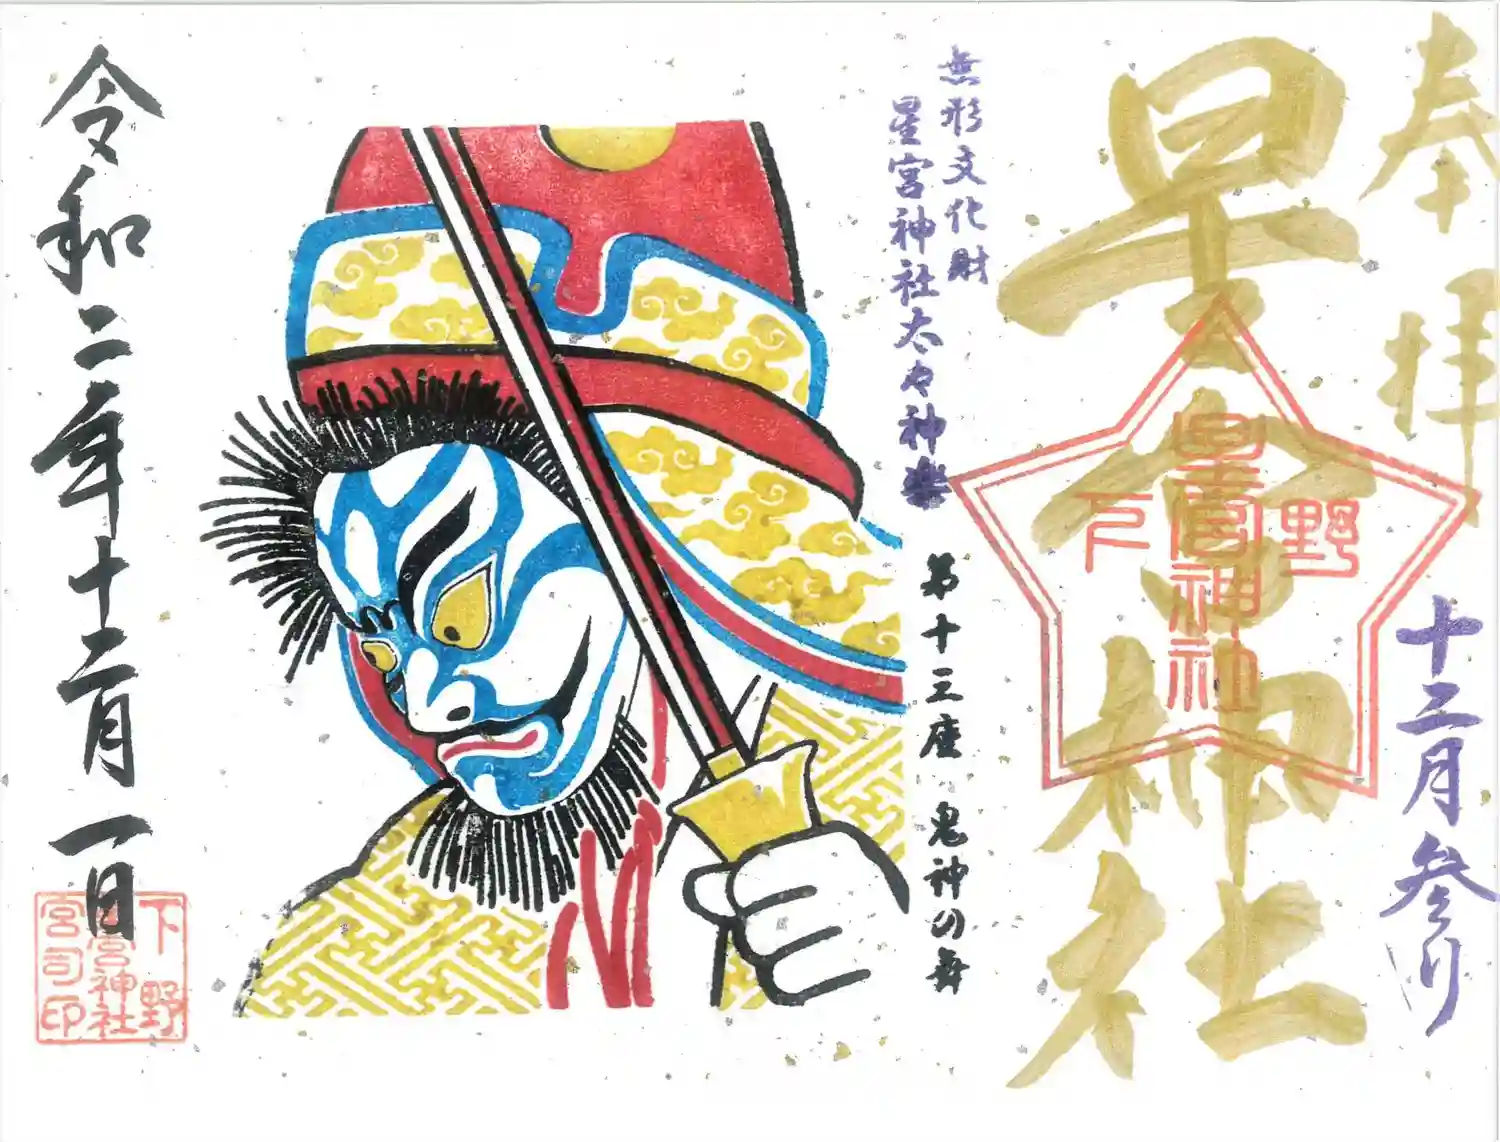 奉拝
十二月参り
星宮神社
下野
星宮神社
無形文化財
星宮神社太々神楽
第十三座 鬼神の舞
令和二年十二月一日
下野
星宮神社
宮司印